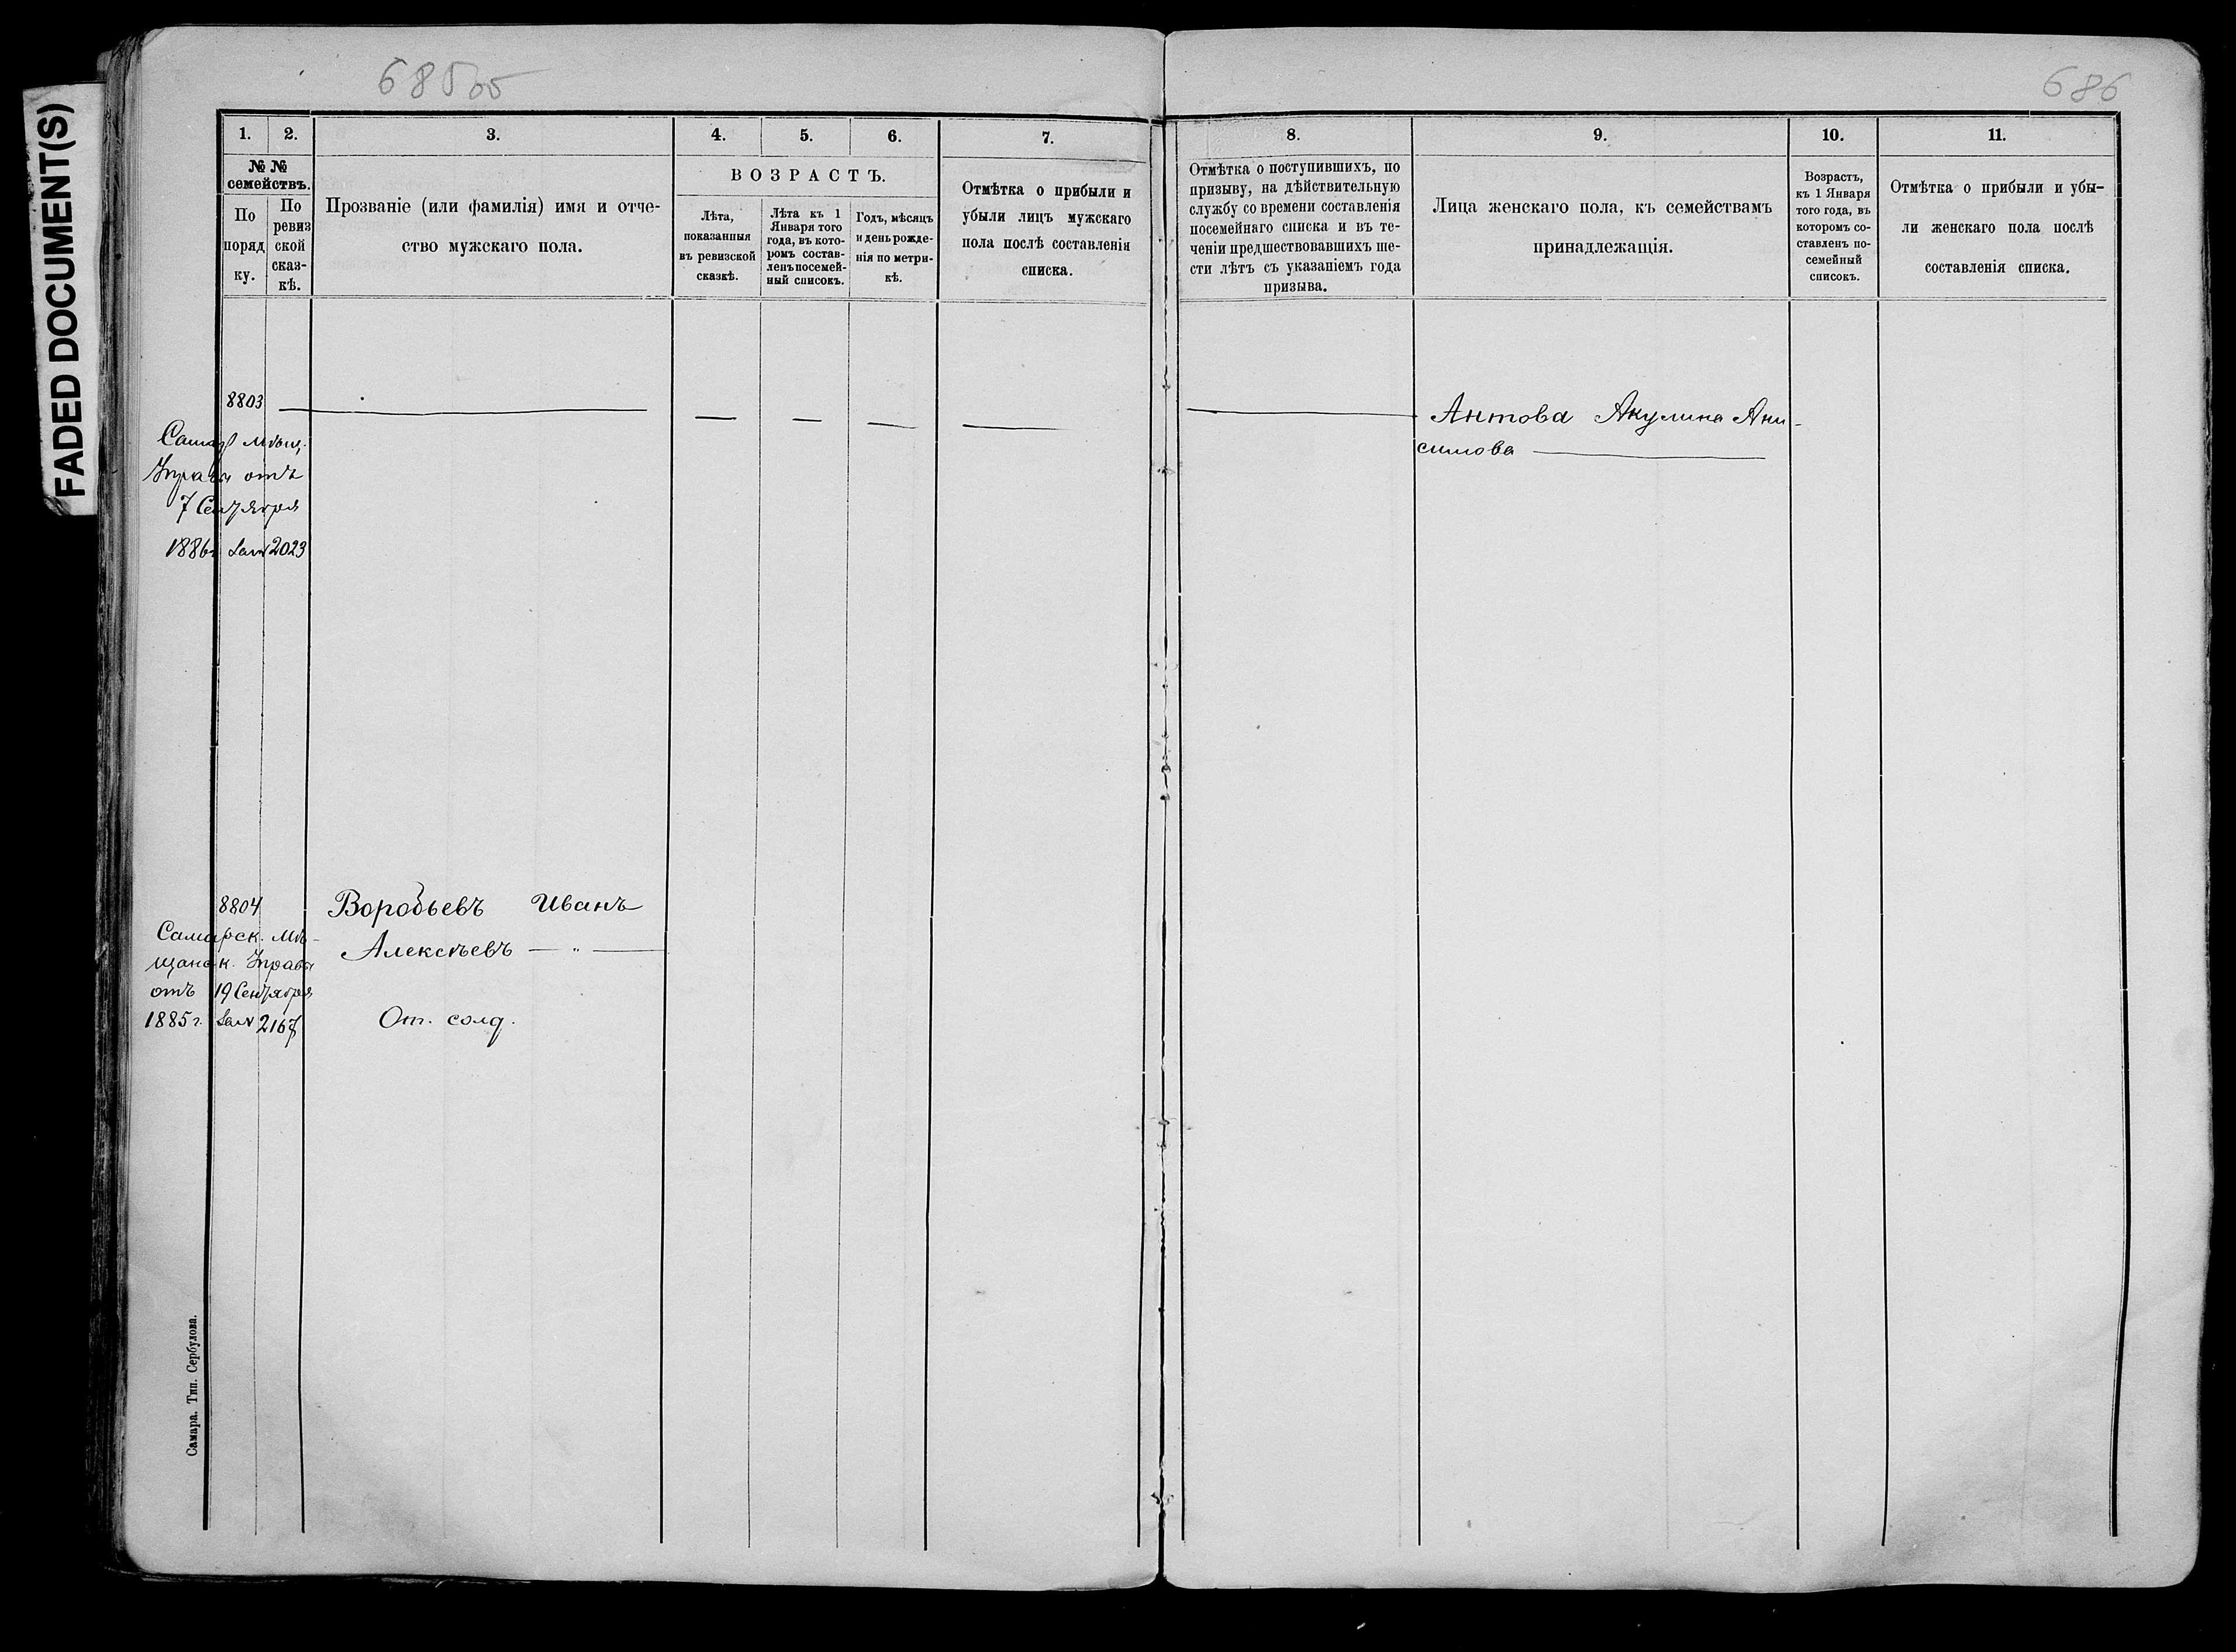 FADED DOCUMENT(S)
685об
686
1.
2.
3.
4.
5.
6.
7.
8.
9.
10.
11.
№ №
семействъ.
По
поряд
ку.
По
ревиз
ской
сказ-
кѣ.
Прозваніе (или фамилія) имя и отче-
ство мужскаго пола.
ВОЗРАСТЪ.
Лѣта,
показанныя
въ ревизской
сказкѣ.
Лѣта къ 1
Января того
года, въ кото-
ромъ состав-
ленъ посемей-
ный списокъ.
Годъ, мѣсяцъ
и день рожде-
нія по метри-
кѣ.
Отмѣтка о прибыли и
убыли лицъ мужскаго
пола послѣ составленія
списка.
Отмѣтка о поступившихъ, по
призыву, на дѣйствительную
службу со времени составленія
посемейнаго списка и въ те-
ченіи предшествовавшихъ ше-
сти лѣтъ съ указаніемъ года
призыва.
Лица женскаго пола, къ семействамъ
принадлежащія.
Возрастъ,
къ 1 Января
того года, въ
которомъ со-
ставленъ по-
семейный
списокъ.
Отмѣтка о прибыли и убы-
ли женскаго пола послѣ
составленія списка.
8803
Самар Мѣщ.
Управы отъ
7 Сентября
1886г за № 2023
Антова Акулина Ани-
симова
8804
Самарск. Мѣ-
щанск. Управы
отъ 19 Сентября
1885г. за № 2167
Воробьевъ Иванъ
Алексѣевъ — " —
От. солд.
Самара. Тип. Сербулова.